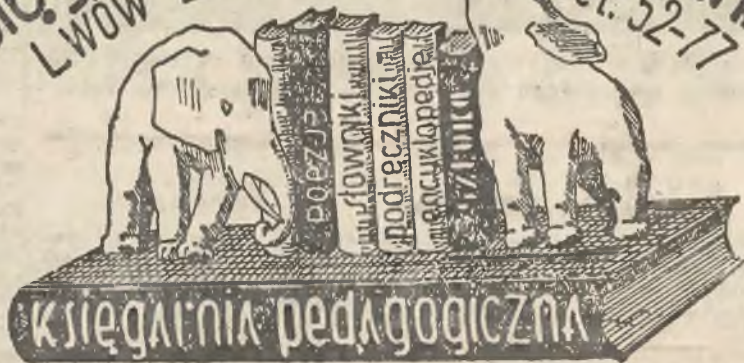 LWÓW
tel. 52-77
poezje
słowniki
podręczniki
encyklopedje
sztuka
księgarnia pedagogiczna